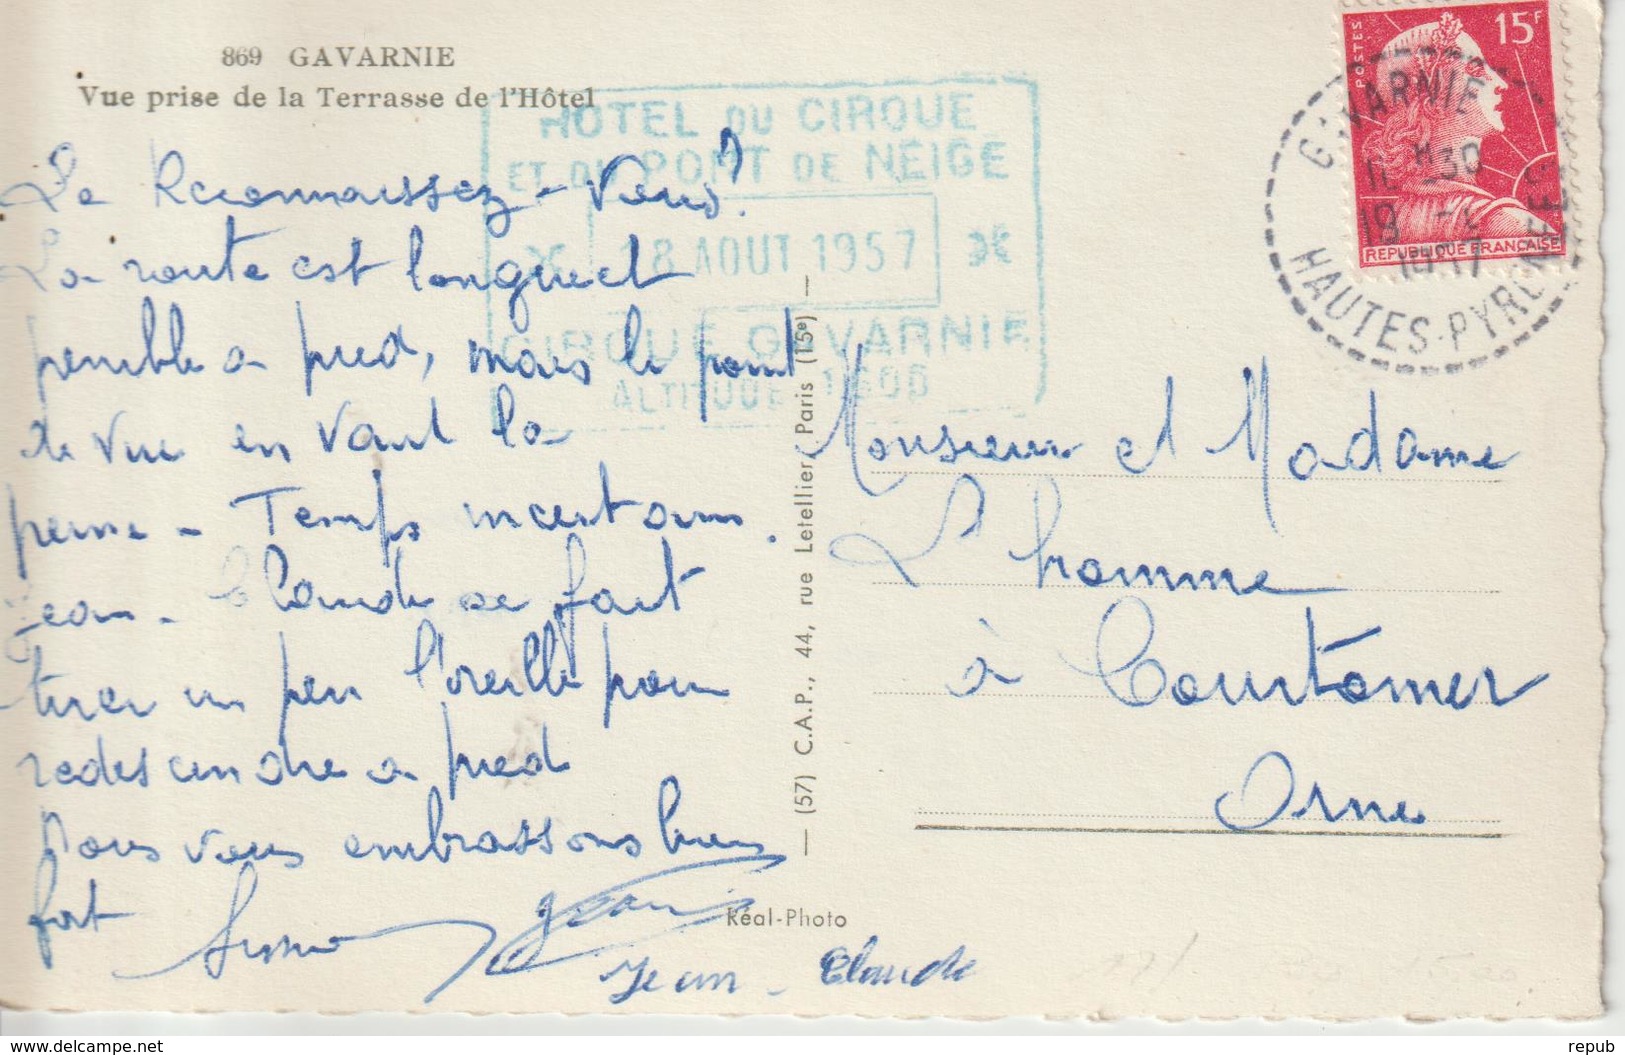 869 GAVARNIE
Vue prise de la Terrasse de l'Hôtel
HOTEL DU CIRQUE
ET DU PONT DE NEIGE
18 AOUT 1957
CIRQUE GAVARNIE
ALTITUDE
POSTES
15F
REPUBLIQUE FRANÇAISE
GAVARNIE
HAUTES-PYRENEES
Le Reconnaissez-vous?
La route est longue et
penible a pied, mais le point
de vue en vaut la
peine - Temps incertain.
Jean-Claude se fait
tirer un peu l'oreille pour
redescendre a pied
Nous vous embrassons bien
fort
Jean
Jean-Claude
(57) C.A.P., 44, rue Letellier, Paris (15e)
Réal-Photo
Monsieur et Madame
L'homme
à Courtomer
Orne
www.delcampe.net
repub